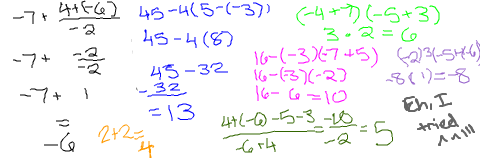 -7 + 4+(-6)/-2
-7 + -2/-2
-7 + 1
=
-6
2+2=
4
45-4(5-(-3))
45-4(8)
45-32
-32
=13
(-4+7)(-5+3)
3 · 2 = 6
16-(-3)(-7+5)
16-(-3)(-2)
16-6=10
(-2)³(-5+(-6)
-8(1)=-8
4+(-6)-5-3/-6+4 = -10/-2 = 5
Eh, I
tried